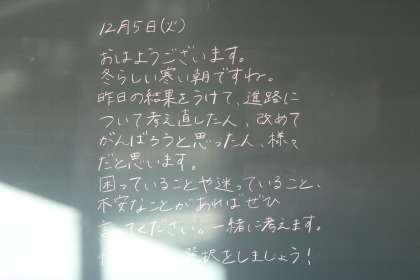 12月5日(火)
おはようございます。
冬らしい寒い朝ですね。
昨日の結果をうけて、進路に
ついて考え直した人、改めて
がんばろうと思った人、様々
だと思います。
困っていることや迷っていること、
不安なことがあればぜひ
言ってください。一緒に考えます。
選択をしましょう!